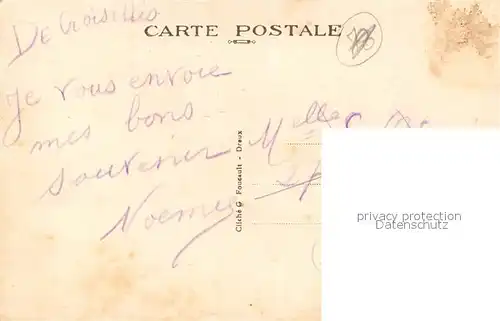 De Croisilles
CARTE POSTALE
Je vous envoie
mes bons
souvenir
Noemie
Cliché G. Foucault - Dreux
Melle
privacy protection
www.ansichtskarten-center.de